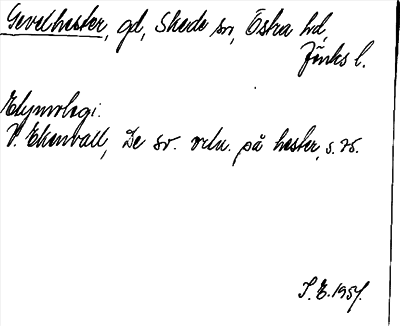 Gevelhester, gd, Skede sn, Östra hd,
Jönk. l.
Etymologi:
V. Ekenvall, De sv. ortn. på hester, s. 25.
S.E. 1957.